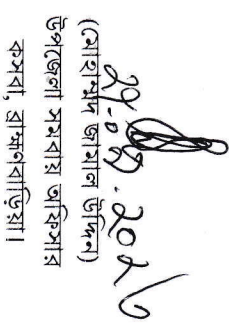 ২৮.০৪.২০২৬
(মোহাম্মদ জামাল উদ্দিন)
উপজেলা সমবায় অফিসার
কসবা, ব্রাহ্মণবাড়িয়া।